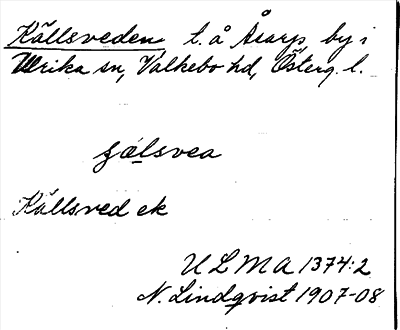 Källsveden t. å Åsarps by i
Ulrika sn, Valkebo hd, Österg. l.
ʃälsvea
Källsved ek
ULMA 1374:2
N. Lindqvist 1907-08